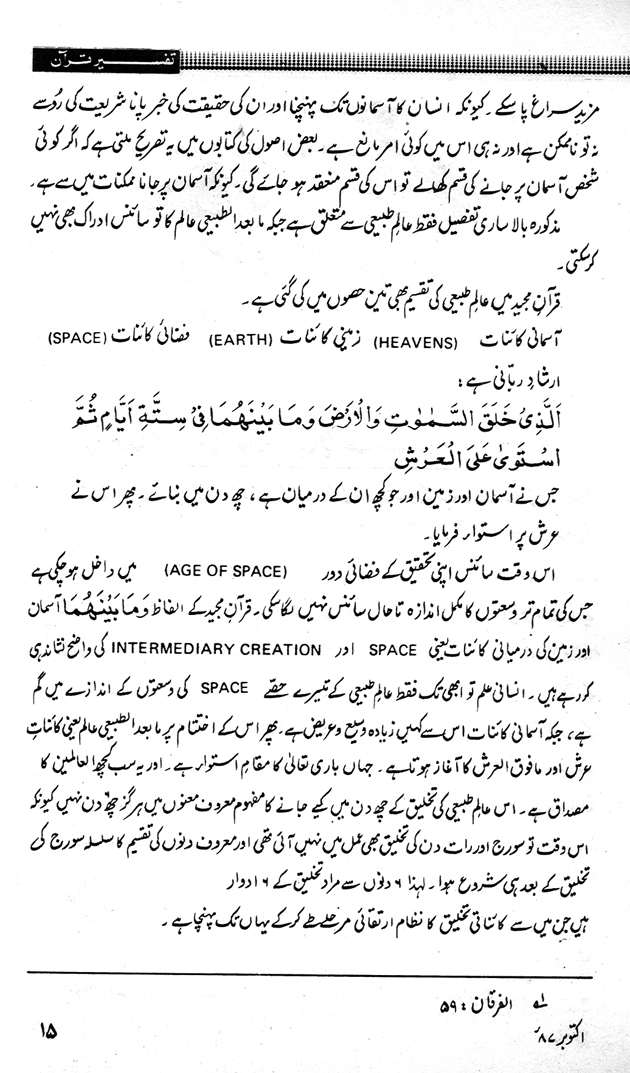 تفسیر قرآن
مزید سراغ پا سکے۔ کیونکہ انسان کا آسمانوں تک پہنچنا اور ان کی حقیقت کی خبر پانا شریعت کی رُو سے
نہ تو ناممکن ہے اور نہ ہی اس میں کوئی امر مانع ہے۔ بعض اصول کی کتابوں میں یہ تصریح ملتی ہے کہ اگر کوئی
شخص آسمان پر جانے کی قسم کھالے تو اس کی قسم منعقد ہو جائے گی۔ کیونکہ آسمان پر جانا ممکنات میں سے ہے۔
مذکورہ بالا ساری تفصیل فقط عالمِ طبیعی سے متعلق ہے جبکہ ما بعد الطبیعی عالم کا تو سائنس ادراک بھی نہیں
کرسکتی۔
قرآنِ مجید میں عالمِ طبیعی کی تقسیم بھی تین حصوں میں کی گئی ہے۔
آسمانی کائنات (HEAVENS) زمینی کائنات (EARTH) فضائی کائنات (SPACE)
ارشادِ ربّانی ہے:
اَلَّذِیْ خَلَقَ السَّمٰوٰتِ وَالْاَرْضَ وَمَا بَیْنَهُمَا فِیْ سِتَّةِ اَیَّامٍ ثُمَّ
اسْتَوٰی عَلَی الْعَرْشِ
جس نے آسمان اور زمین اور جو کچھ ان کے درمیان ہے، چھ دن میں بنائے۔ پھر اس نے
عرش پر استوار فرمایا۔
اس وقت سائنس اپنی تحقیق کے فضائی دور (AGE OF SPACE) میں داخل ہوچکی ہے
جس کی تمام تر وسعتوں کا مکمل اندازہ تاحال سائنس نہیں لگا سکی۔ قرآنِ مجید کے الفاظ وَمَا بَیْنَهُمَا آسمان
اور زمین کی درمیانی کائنات یعنی SPACE اور INTERMEDIARY CREATION کی واضح نشاندہی
کر رہے ہیں۔ انسانی علم تو ابھی تک فقط عالمِ طبیعی کے تیسرے حصّے SPACE کی وسعتوں کے اندازے میں گم
ہے، جبکہ آسمانی کائنات اس سے کہیں زیادہ وسیع و عریض ہے۔ پھر اس کے اختتام پر ما بعد الطبیعی عالم یعنی کائناتِ
عرش اور مافوق العرش کا آغاز ہوتا ہے۔ جہاں باری تعالیٰ کا مقامِ استوار ہے۔ اور یہ سب کچھ العالمین کا
مصداق ہے۔ اس عالمِ طبیعی کی تخلیق کے چھ دن میں کیے جانے کا مفہوم معروف معنوں میں ہرگز چھ دن نہیں کیونکہ
اس وقت تو سورج اور رات دن کی تخلیق بھی عمل میں نہیں آئی تھی اور معروف دنوں کی تقسیم کا سلسلہ سورج کی
تخلیق کے بعد ہی شروع ہوا۔ لہذا ۶ دنوں سے مراد تخلیق کے ۶ ادوار
ہیں جن میں سے کائناتی تخلیق کا نظام ارتقائی مرحلے طے کر کے یہاں تک پہنچا ہے۔
لہ الفرقان : ۵۹
اکتوبر ۸۷ء
۱۵